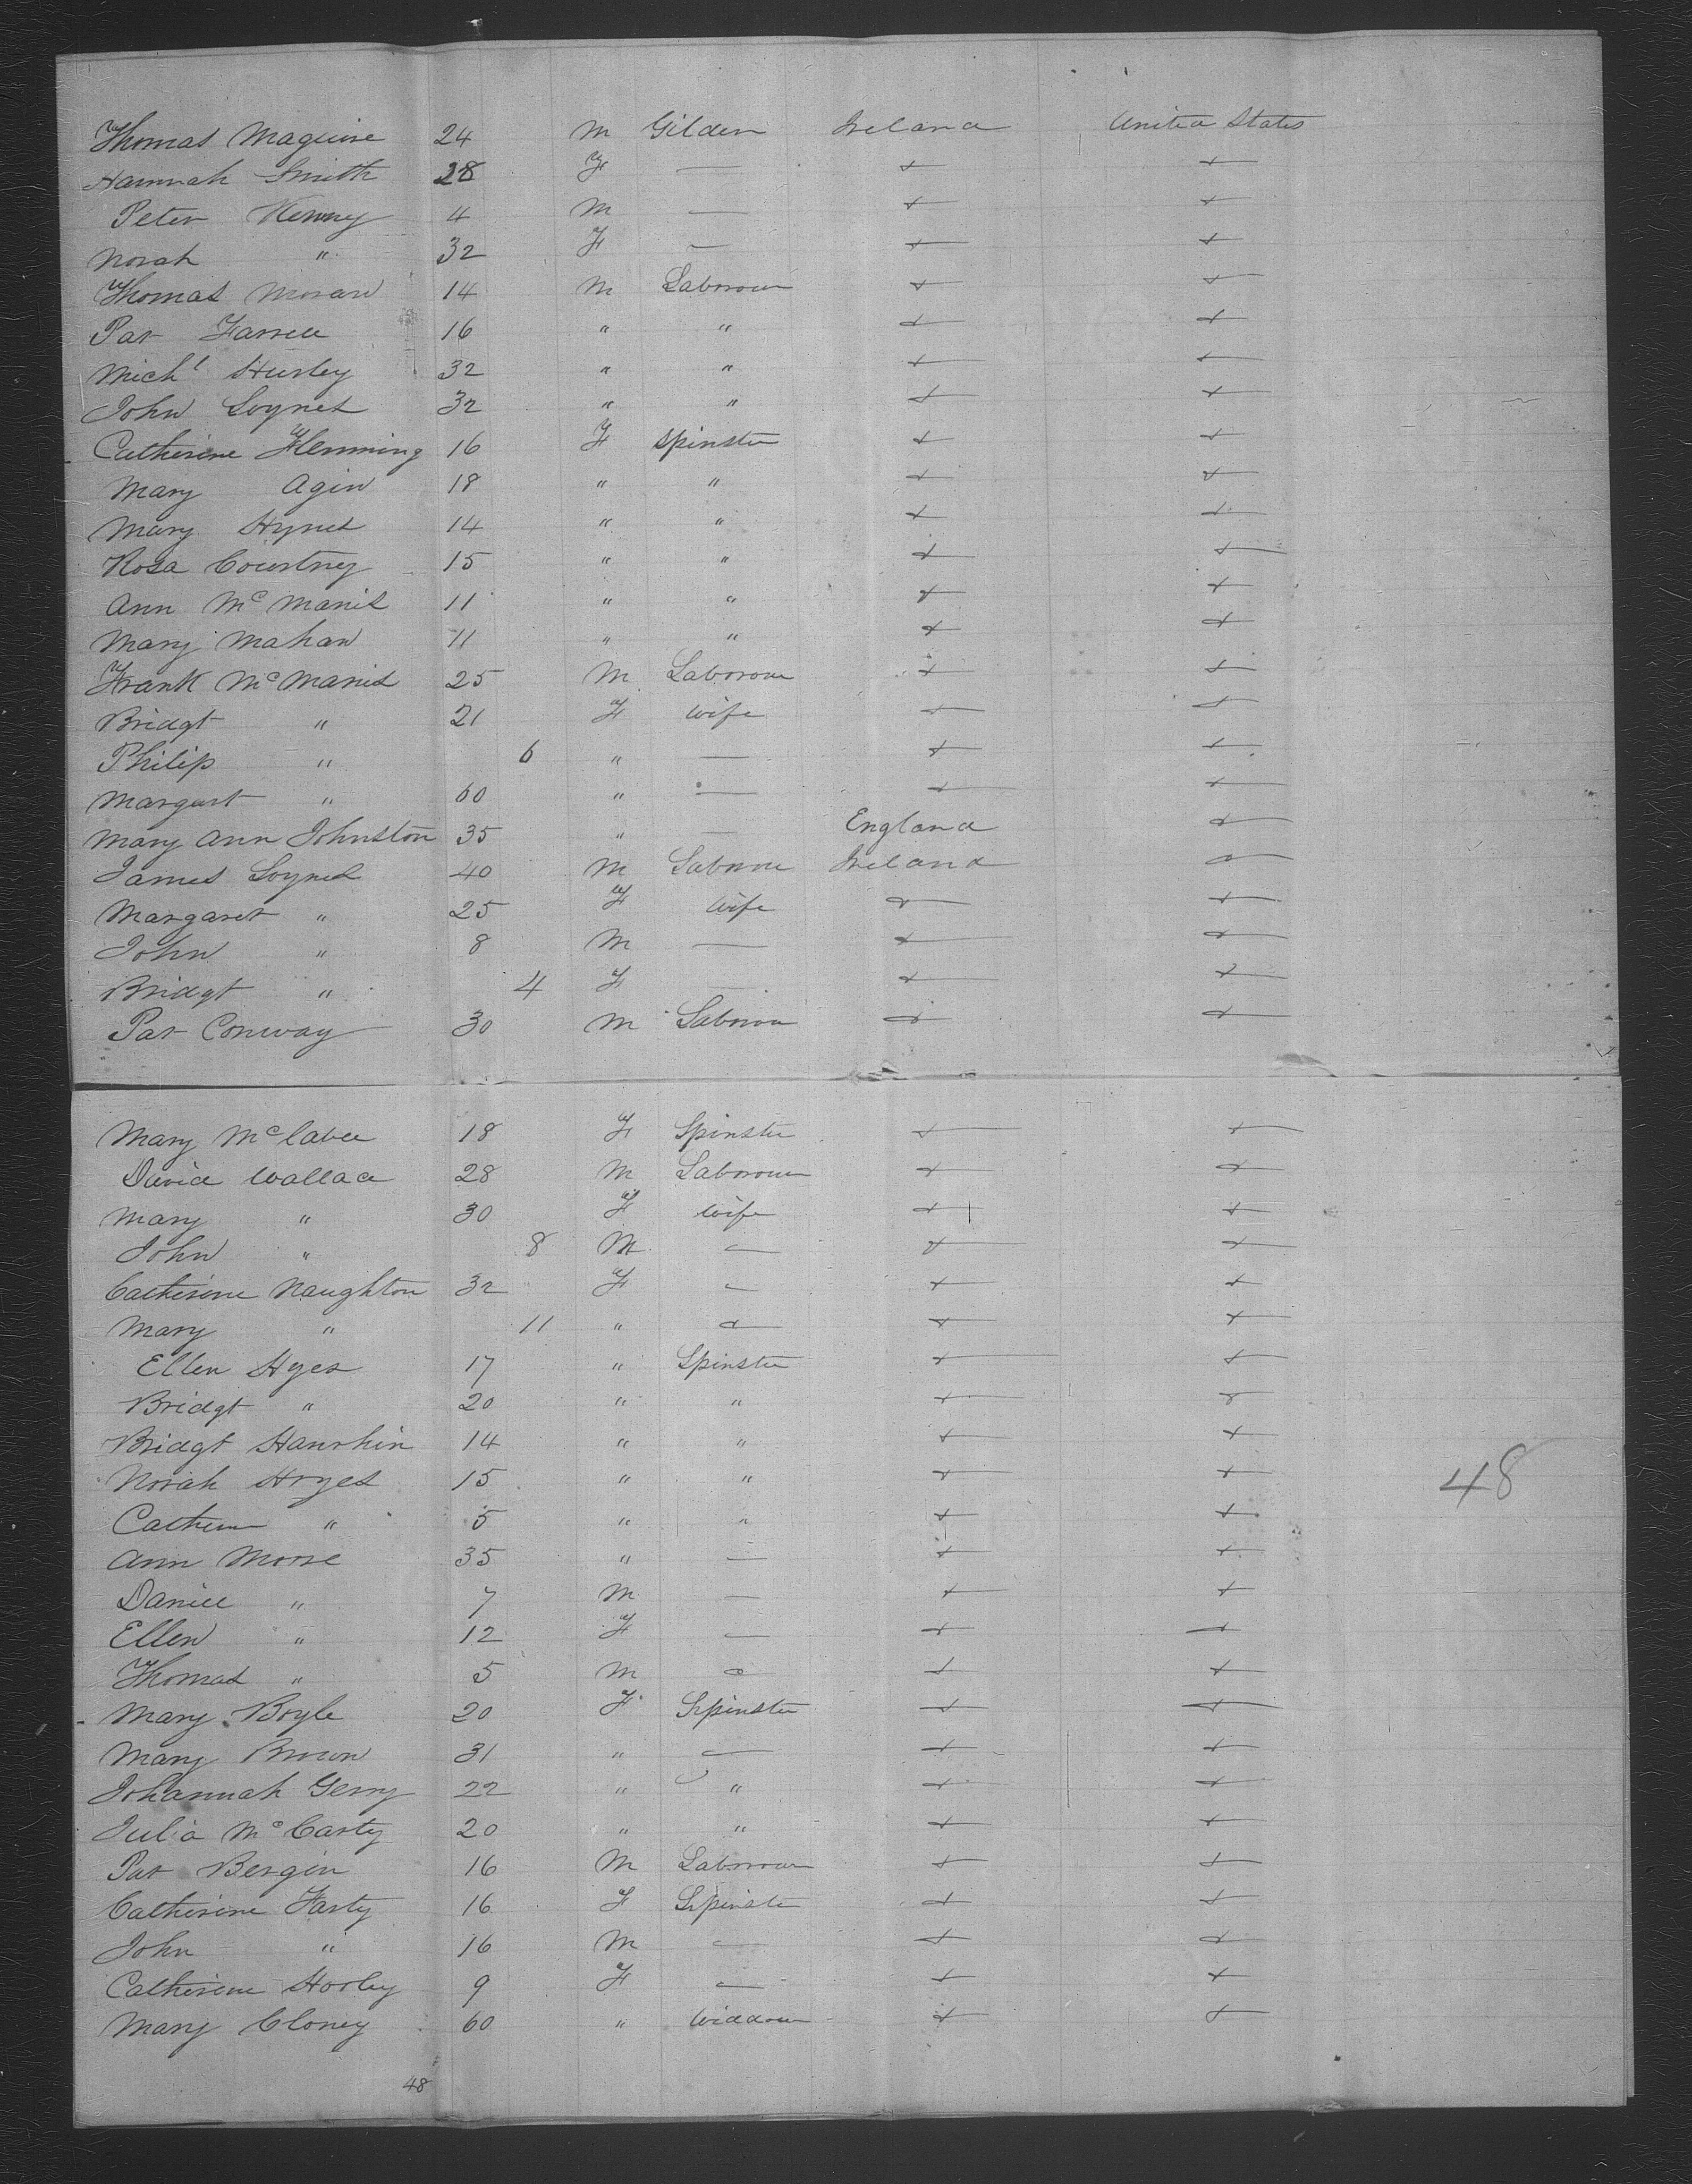 Thomas Maguire 24 M Gilder Ireland United States
Hannah Smith 28 F — + +
Peter Kenny 4 M — + +
Norah " 32 F — + +
Thomas Moran 14 M Laborour + +
Pat Farrell 16 " " + +
Mich^l Hurley 32 " " + +
John Loynes 32 " " + +
Catherine Flemming 16 F Spinster + +
Mary Agin 18 " " + +
Mary Hynes 14 " " + +
Rosa Courtney 15 " " + +
Ann McManis 11 " " + +
Mary Mahan 11 " " + +
Frank McManis 25 M Laborour + +
Bridgt " 21 F Wife + +
Philip " 6 " — + +
Margart " 60 " — + +
Mary Ann Johnston 35 " — England +
James Loynes 40 M Laborour Ireland +
Margaret " 25 F Wife + +
John " 8 M — + +
Bridgt " 4 F — + +
Pat Conway 30 M Laborour + +
Mary McCabee 18 F Spinster + +
David Wallace 28 M Laborour + +
Mary " 30 F Wife + +
John " 8 M — + +
Catherine Naughton 32 F — + +
Mary " 11 " — + +
Ellen Hyes 17 " Spinster + +
Bridgt " 20 " " + +
Bridgt Hanrhin 14 " " + +
Norah Hoyes 15 " " + + 48
Cathern " 5 " " + +
Ann Moore 35 " — + +
Daniel " 7 M — + +
Ellen " 12 F — + +
Thomas " 5 M — + +
Mary Boyle 20 F Spinster + +
Mary Brown 31 " — + +
Johannah Gerry 22 " " + +
Julia McCarty 20 " " + +
Pat Bergin 16 M Laborour + +
Catherine Farty 16 F Spinster + +
John " 16 M — + +
Catherine Horley 9 F — + +
Mary Cloney 60 " Widdow + +
48